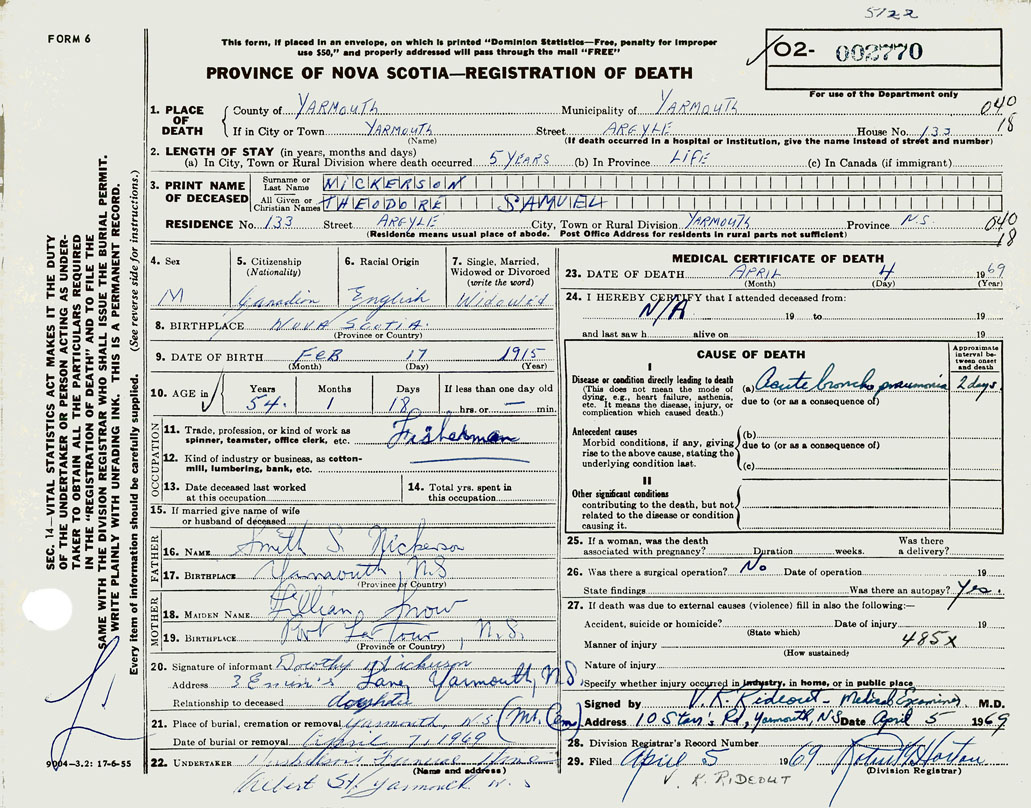 5/22
FORM 6
This form, if placed in an envelope, on which is printed "Dominion Statistics—Free, penalty for improper
use $50," and properly addressed will pass through the mail "FREE"
PROVINCE OF NOVA SCOTIA—REGISTRATION OF DEATH
O2- 002770
For use of the Department only
1. PLACE OF DEATH County of YARMOUTH Municipality of YARMOUTH 040
If in City or Town YARMOUTH Street ARGYLE House No. 133 18
(Name) (If death occurred in a hospital or institution, give the name instead of street and number)
2. LENGTH OF STAY (in years, months and days)
(a) In City, Town or Rural Division where death occurred 5 YEARS (b) In Province LIFE (c) In Canada (if immigrant)
3. PRINT NAME OF DECEASED Surname or Last Name NICKERSON
All Given or Christian Names THEODORE SAMUEL
RESIDENCE No. 133 Street ARGYLE City, Town or Rural Division YARMOUTH Province N.S. 040
(Residence means usual place of abode. Post Office Address for residents in rural parts not sufficient) 18
4. Sex M
5. Citizenship (Nationality) Canadian
6. Racial Origin English
7. Single, Married, Widowed or Divorced (write the word) Widowed
8. BIRTHPLACE NOVA SCOTIA.
(Province or Country)
9. DATE OF BIRTH FEB 17 1915
(Month) (Day) (Year)
10. AGE in Years 54. Months 1 Days 18 If less than one day old hrs. or — min.
OCCUPATION
11. Trade, profession, or kind of work as spinner, teamster, office clerk, etc. Fisherman
12. Kind of industry or business, as cotton-mill, lumbering, bank, etc.
13. Date deceased last worked at this occupation
14. Total yrs. spent in this occupation
15. If married give name of wife or husband of deceased
FATHER
16. NAME Smith S. Nickerson
17. BIRTHPLACE Yarmouth, N.S
(Province or Country)
MOTHER
18. MAIDEN NAME Lillian Snow
19. BIRTHPLACE Port La Tour, N.S.
(Province or Country)
20. Signature of informant Dorothy Nickerson
Address 3 Lane, Yarmouth, N.S.
Relationship to deceased daughter
21. Place of burial, cremation or removal Yarmouth, N.S (Mt. Cem)
Date of burial or removal April 7, 1969
22. UNDERTAKER Funeral Home
(Name and address)
Albert St. Yarmouth N.S
MEDICAL CERTIFICATE OF DEATH
23. DATE OF DEATH APRIL 4 1969
(Month) (Day) (Year)
24. I HEREBY CERTIFY that I attended deceased from:
N/A 19 to 19
and last saw h alive on 19
CAUSE OF DEATH
Approximate interval between onset and death
I
Disease or condition directly leading to death (a) Acute broncho pneumonia 2 days
(This does not mean the mode of dying, e.g., heart failure, asthenia, etc. It means the disease, injury, or complication which caused death.) due to (or as a consequence of)
Antecedent causes (b)
Morbid conditions, if any, giving rise to the above cause, stating the underlying condition last. due to (or as a consequence of)
(c)
II
Other significant conditions
contributing to the death, but not related to the disease or condition causing it.
25. If a woman, was the death associated with pregnancy? Duration weeks. Was there a delivery?
26. Was there a surgical operation? No Date of operation 19
State findings Was there an autopsy? Yes.
27. If death was due to external causes (violence) fill in also the following:—
Accident, suicide or homicide? Date of injury 19
(State which)
Manner of injury 485X
(How sustained)
Nature of injury
Specify whether injury occurred in industry, in home, or in public place
Signed by V. K. Rideout, Medical Examiner M.D.
Address 10 Starr's Rd, Yarmouth, N.S Date April 5 1969
28. Division Registrar's Record Number
29. Filed April 5 1969
(Division Registrar)
V. K. RIDEOUT
SEC. 14—VITAL STATISTICS ACT MAKES IT THE DUTY
OF THE UNDERTAKER OR PERSON ACTING AS UNDER-
TAKER TO OBTAIN ALL THE PARTICULARS REQUIRED
IN THE "REGISTRATION OF DEATH" AND TO FILE THE
SAME WITH THE DIVISION REGISTRAR WHO SHALL ISSUE THE BURIAL PERMIT.
WRITE PLAINLY WITH UNFADING INK. THIS IS A PERMANENT RECORD.
Every item of information should be carefully supplied. (See reverse side for instructions.)
9004—3.2: 17-6-55